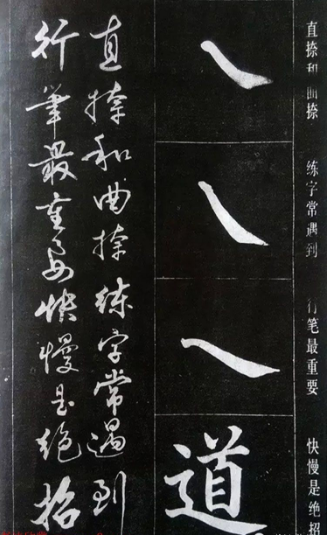 直捺和曲捺
练字常遇到
行笔最重要
快慢是绝招
道
直捺和曲捺练字常遇到
行笔最重要快慢是绝招